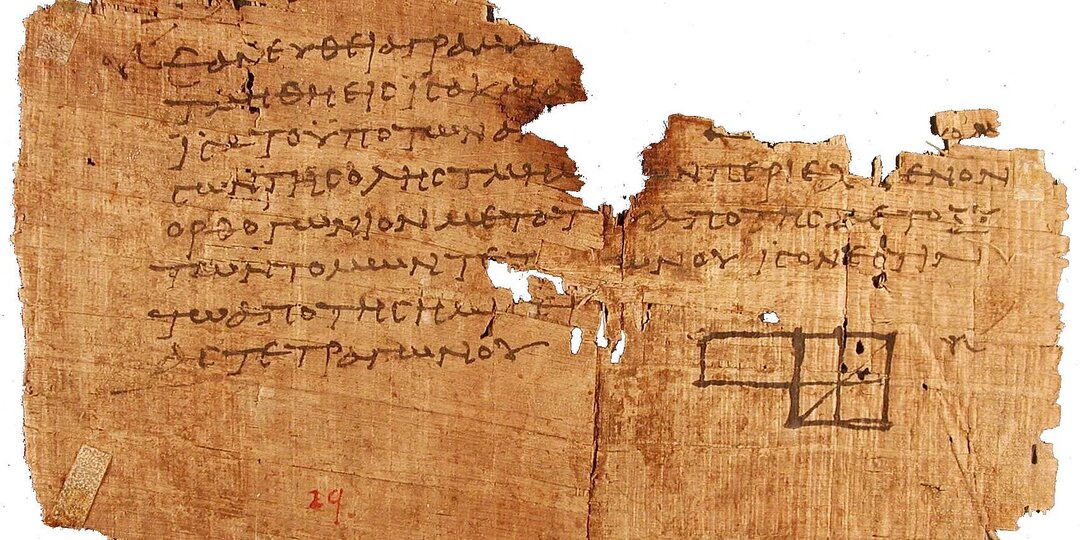 ΕΑΝ ΕΥΘΕΙΑ ΓΡΑΜΜ
ΤΜΗΘΗ ΕΙϹ ΙϹΑ ΚΑΙ ΑΝ
ΙϹΑ ΤΟ ΥΠΟ ΤΩΝ Α
ΙϹΩΝ ΤΗϹ ΟΛΗϹ ΤΜΗΜ ΩΝ ΠΕΡΙΕΧ ΕΝΟΝ
ΟΡΘΟΓΩΝΙΟΝ ΜΕΤΑ ΤΟΥ ΑΠΟ ΤΗϹ ΜΕΤΟΞΥ
ΤΩΝ ΤΟΜΩΝ ΤΕΤ ΩΝΟΥ ΙϹΟΝ ΕϹΤΙΝ
ΤΩ ΑΠΟ ΤΗϹ ΗΜΙ ΕΙ
ΑϹ ΤΕΤΡΑΓΩΝΟΥ
29